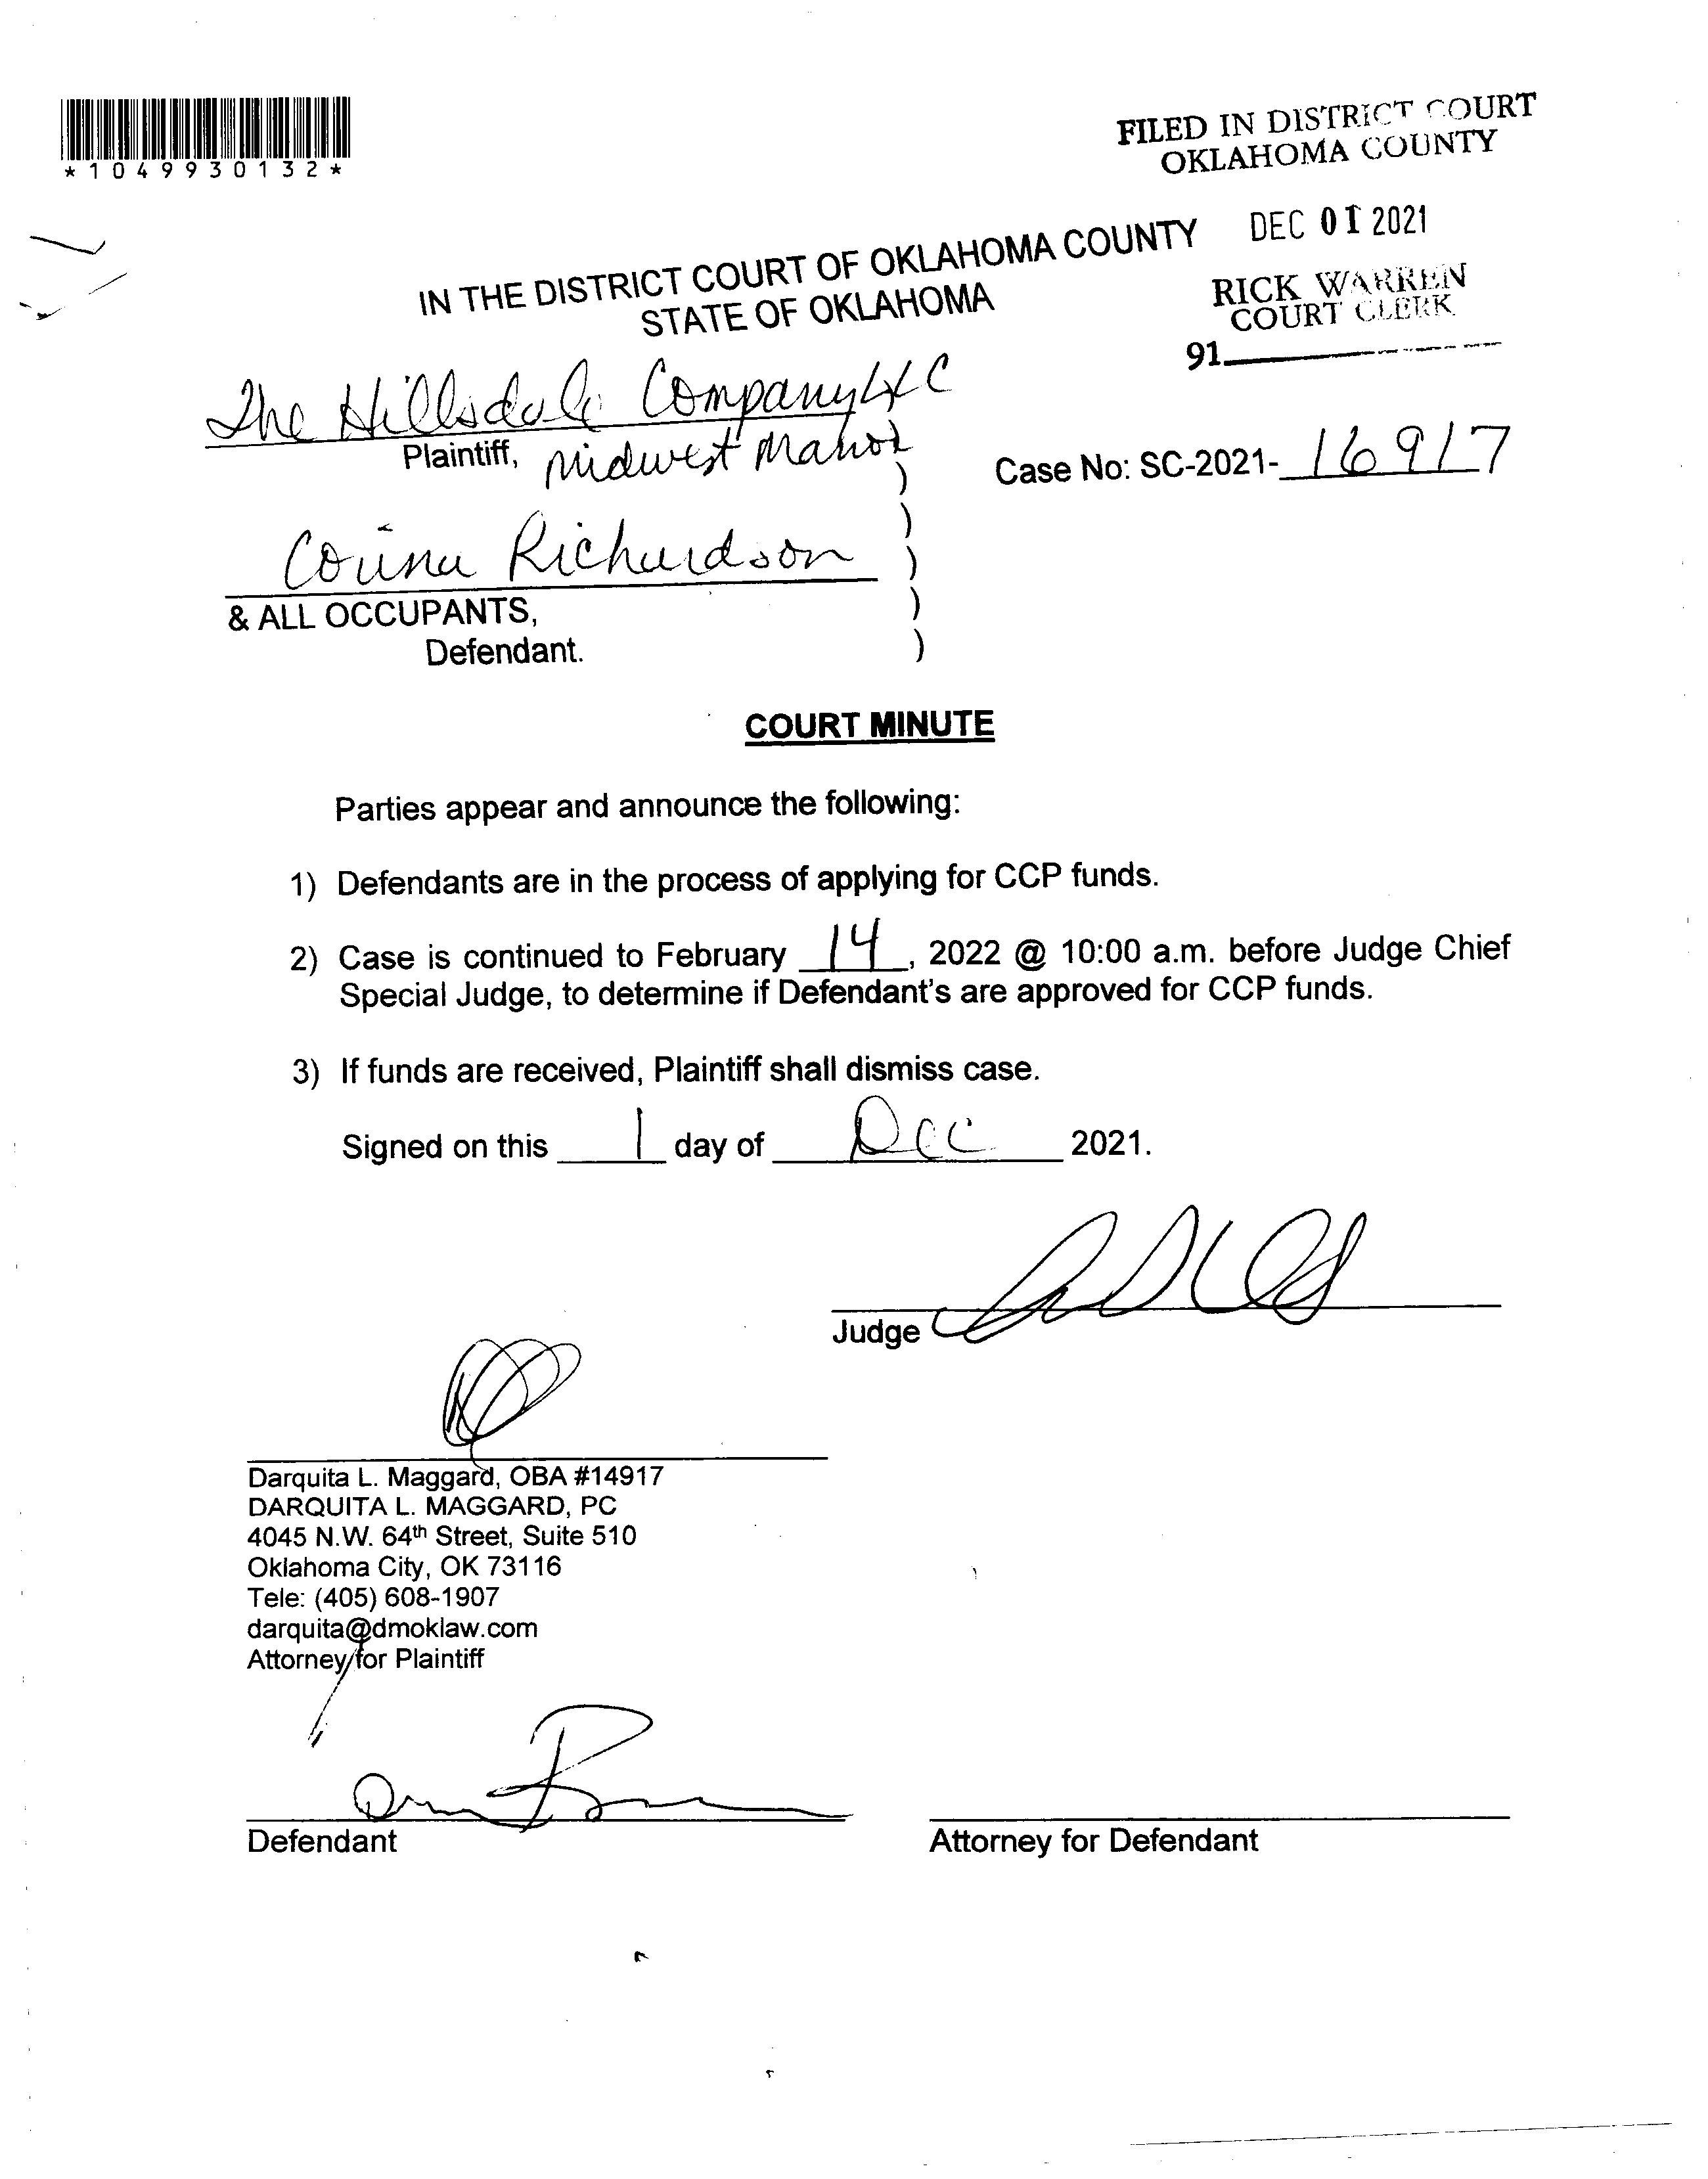 *1049930132*
FILED IN DISTRICT COURT
OKLAHOMA COUNTY
DEC 01 2021
RICK WARREN
COURT CLERK
91
IN THE DISTRICT COURT OF OKLAHOMA COUNTY
STATE OF OKLAHOMA
The Hillsdale Company LLC
Plaintiff, Midwest Manor
)
Case No: SC-2021-16917
)
Richardson )
& ALL OCCUPANTS, )
Defendant. )
COURT MINUTE
Parties appear and announce the following:
1) Defendants are in the process of applying for CCP funds.
2) Case is continued to February 14, 2022 @ 10:00 a.m. before Judge Chief
Special Judge, to determine if Defendant's are approved for CCP funds.
3) If funds are received, Plaintiff shall dismiss case.
Signed on this 1 day of Dec 2021.
Judge
Darquita L. Maggard, OBA #14917
DARQUITA L. MAGGARD, PC
4045 N.W. 64th Street, Suite 510
Oklahoma City, OK 73116
Tele: (405) 608-1907
darquita@dmoklaw.com
Attorney for Plaintiff
Defendant
Attorney for Defendant